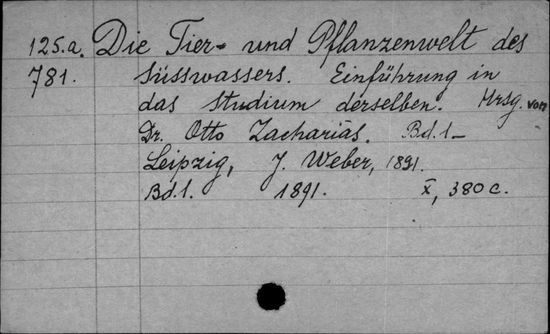 125.a. Die Tier- und Pflanzenwelt des
781. Süsswassers. Einführung in
das Studium derselben. Hrsg. von
Dr. Otto Zacharias. Bd. 1-
Leipzig, J. Weber, 1891.
Bd. 1. 1891. X, 380 c.